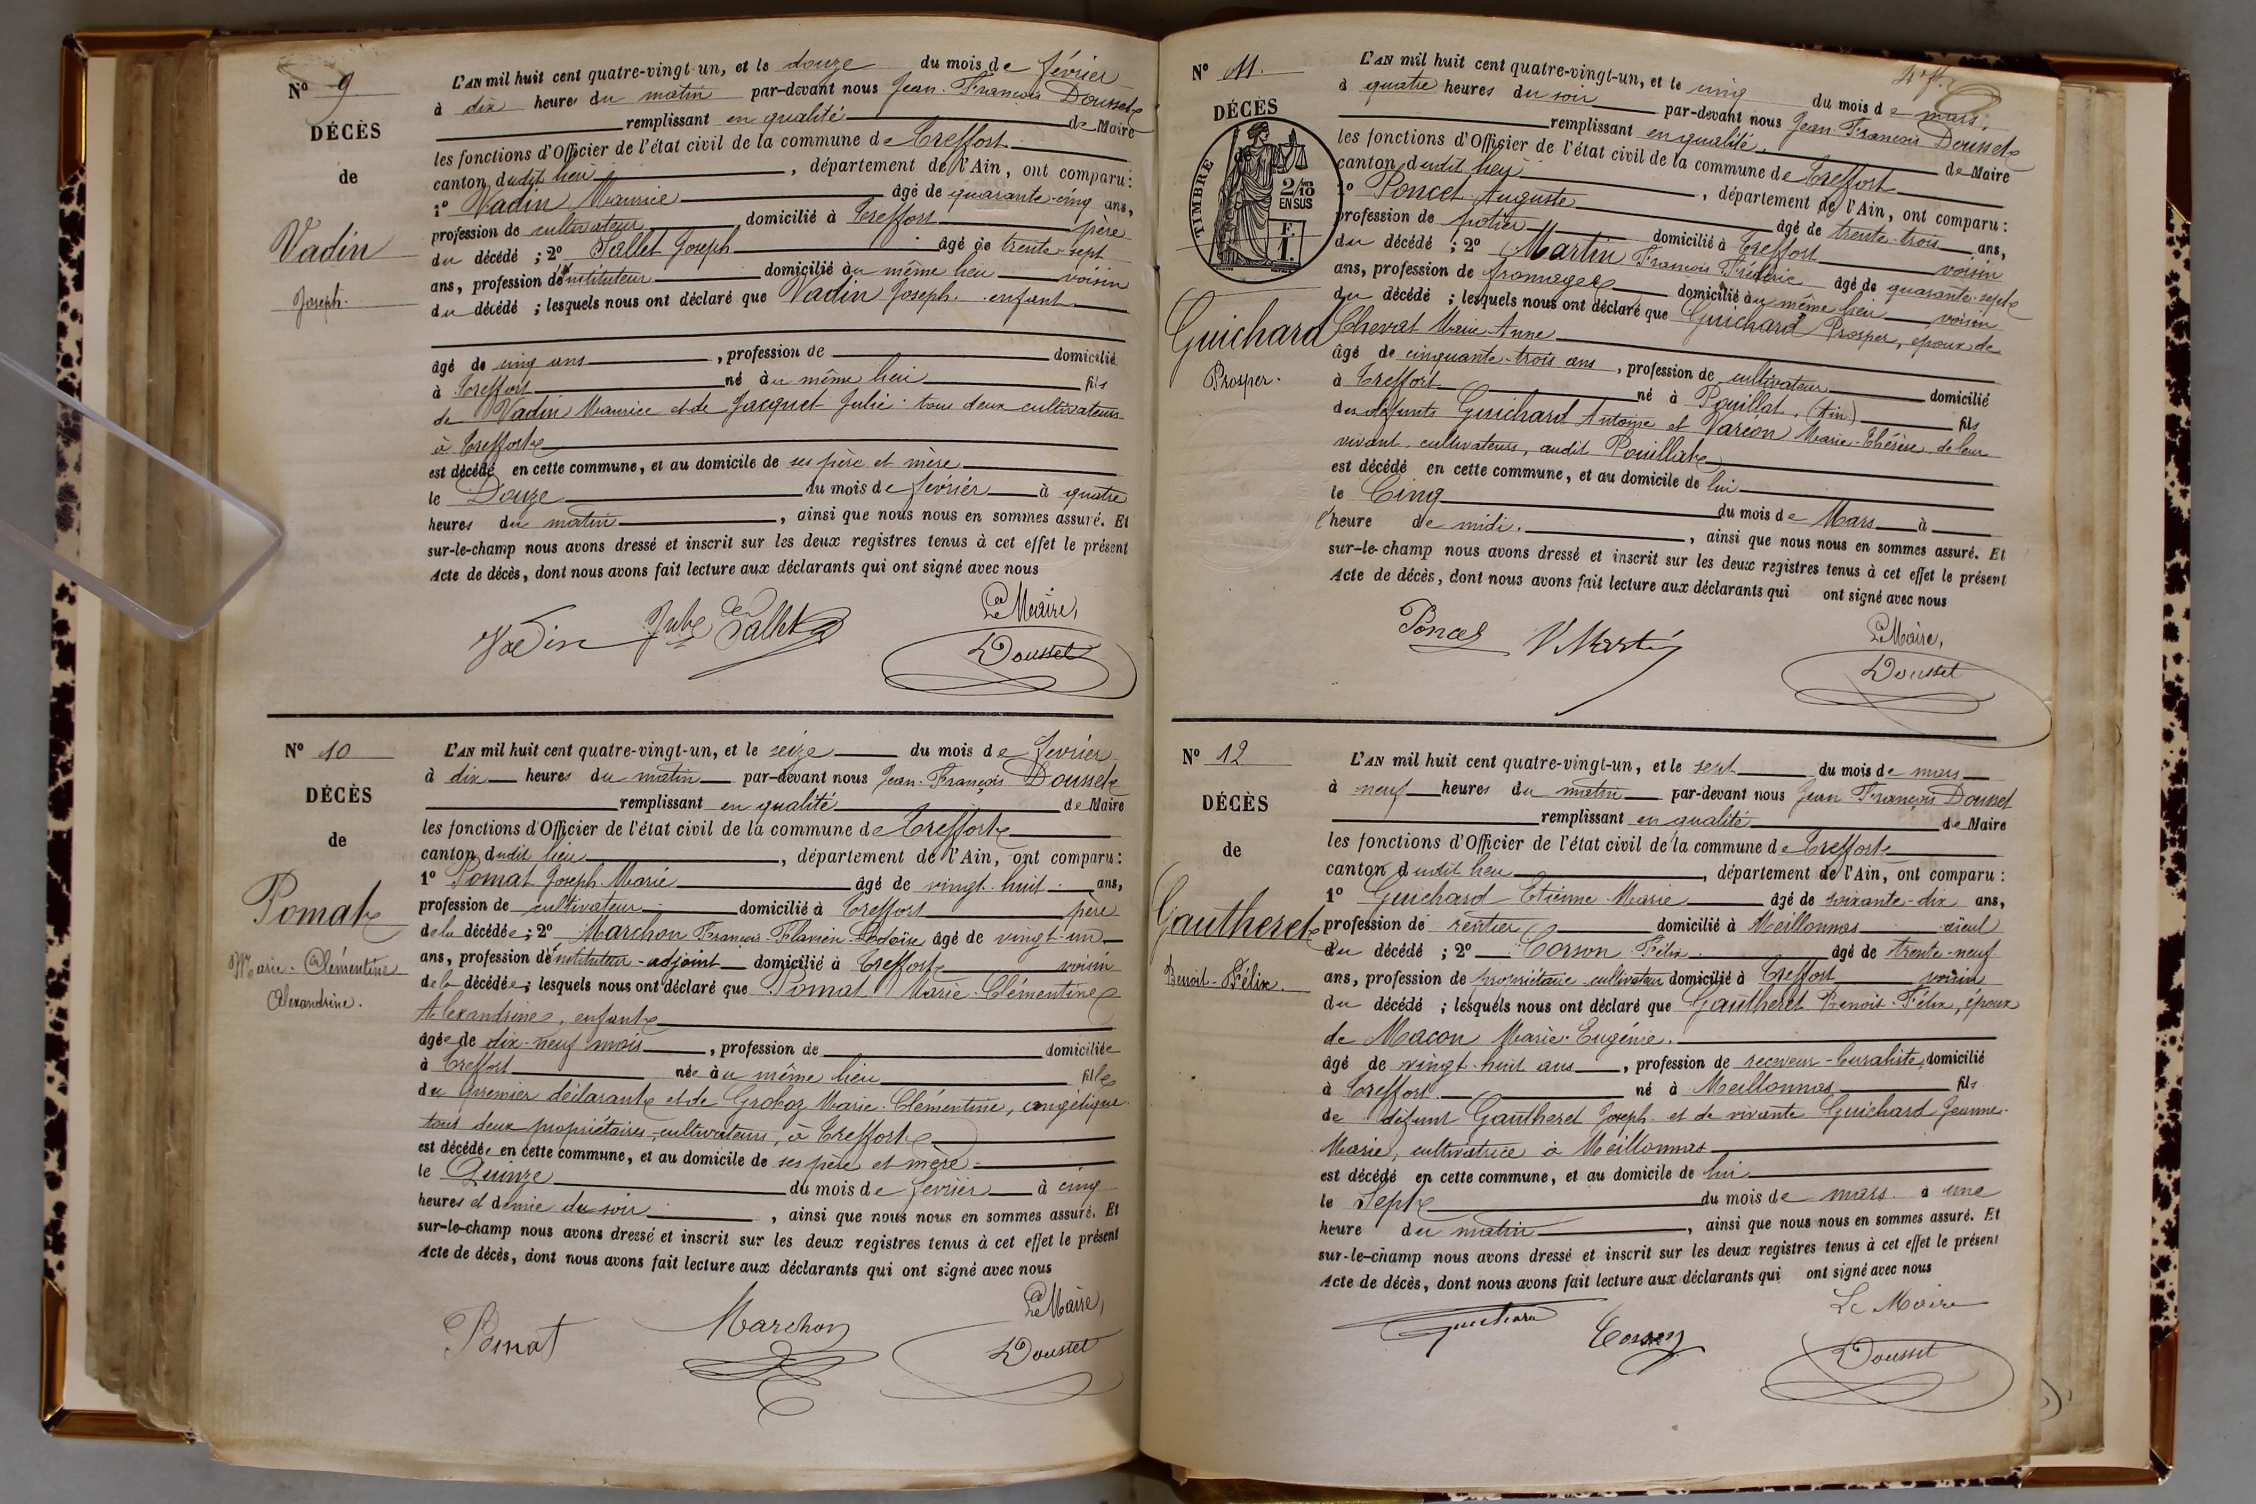 Nº 9
DÉCÈS
de
Vadin
Joseph
L'AN mil huit cent quatre-vingt-un, et le douze du mois de février
à dix heures du matin par-devant nous Jean-François Dousset
remplissant en qualité de Maire
les fonctions d'Officier de l'état civil de la commune de Treffort
canton dudit lieu, département de l'Ain, ont comparu :
1º Vadin Maurice âgé de quarante-cinq ans,
profession de cultivateur domicilié à Treffort père
du décédé ; 2º Sallet Joseph âgé de trente-sept
ans, profession d'instituteur domicilié au même lieu voisin
du décédé ; lesquels nous ont déclaré que Vadin Joseph, enfant
âgé de cinq ans, profession de domicilié
à Treffort né au même lieu fils
de Vadin Maurice et de Jacquet Julie tous deux cultivateurs
à Treffort
est décédé en cette commune, et au domicile de ses père et mère
le Douze du mois de février à quatre
heures du matin, ainsi que nous nous en sommes assuré. Et
sur-le-champ nous avons dressé et inscrit sur les deux registres tenus à cet effet le présent
Acte de décès, dont nous avons fait lecture aux déclarants qui ont signé avec nous
Le Maire,
Vadin Sallet Dousset
Nº 10
DÉCÈS
de
Pomat
Marie-Clémentine
Alexandrine.
L'AN mil huit cent quatre-vingt-un, et le seize du mois de février
à dix heures du matin par-devant nous Jean-François Dousset
remplissant en qualité de Maire
les fonctions d'Officier de l'état civil de la commune de Treffort
canton dudit lieu, département de l'Ain, ont comparu :
1º Pomat Joseph-Marie âgé de vingt-huit ans,
profession de cultivateur domicilié à Treffort père
de la décédée ; 2º Marchon François-Flavien âgé de vingt-un
ans, profession d'instituteur-adjoint domicilié à Treffort voisin
de la décédée ; lesquels nous ont déclaré que Pomat Marie-Clémentine
Alexandrine, enfant
âgée de dix-neuf mois, profession de domiciliée
à Treffort née au même lieu fille
du premier déclarant et de Groboz Marie-Clémentine, angélique
tous deux propriétaires-cultivateurs, à Treffort
est décédée en cette commune, et au domicile de ses père et mère
le Quinze du mois de février à cinq
heures et demie du soir, ainsi que nous nous en sommes assuré. Et
sur-le-champ nous avons dressé et inscrit sur les deux registres tenus à cet effet le présent
Acte de décès, dont nous avons fait lecture aux déclarants qui ont signé avec nous
Le Maire,
Pomat Marchon Dousset
Nº 11.
DÉCÈS
TIMBRE
2/10
EN SUS
F.
1.
Guichard
Prosper.
L'AN mil huit cent quatre-vingt-un, et le cinq du mois de mars,
à quatre heures du soir par-devant nous Jean-François Dousset
remplissant en qualité de Maire
les fonctions d'Officier de l'état civil de la commune de Treffort
canton dudit lieu, département de l'Ain, ont comparu :
1º Poncet Auguste âgé de trente-trois ans,
profession de potier domicilié à Treffort voisin
du décédé ; 2º Martin François Frédéric âgé de quarante-sept
ans, profession de fromager domicilié au même lieu voisin
du décédé ; lesquels nous ont déclaré que Guichard Prosper, époux de
Chevat Marie Anne
âgé de cinquante-trois ans, profession de cultivateur domicilié
à Treffort né à Pouillat, (Ain) fils
des défunts Guichard Antoine et Varéon Marie-Thérèse, de leur
vivant cultivateurs, audit Pouillat
est décédé en cette commune, et au domicile de lui
le Cinq du mois de Mars à
l'heure de midi., ainsi que nous nous en sommes assuré. Et
sur-le-champ nous avons dressé et inscrit sur les deux registres tenus à cet effet le présent
Acte de décès, dont nous avons fait lecture aux déclarants qui ont signé avec nous
Le Maire,
Poncet Martin Dousset
Nº 12
DÉCÈS
de
Gautheret
Benoit-Félix.
L'AN mil huit cent quatre-vingt-un, et le sept du mois de mars
à neuf heures du matin par-devant nous Jean François Dousset
remplissant en qualité de Maire
les fonctions d'Officier de l'état civil de la commune de Treffort
canton dudit lieu, département de l'Ain, ont comparu :
1º Guichard Etienne-Marie âgé de soixante-dix ans,
profession de rentier domicilié à Meillonnas aïeul
du décédé ; 2º Corson Félix âgé de trente-neuf
ans, profession de propriétaire cultivateur domicilié à Treffort voisin
du décédé ; lesquels nous ont déclaré que Gautheret Benoit-Félix, époux
de Macon Marie-Eugénie.
âgé de vingt-huit ans, profession de receveur-buraliste, domicilié
à Treffort né à Meillonnas fils
de défunt Gautheret Joseph et de vivante Guichard Jeanne-
Marie, cultivatrice à Meillonnas
est décédé en cette commune, et au domicile de lui
le Sept du mois de mars à une
heure du matin, ainsi que nous nous en sommes assuré. Et
sur-le-champ nous avons dressé et inscrit sur les deux registres tenus à cet effet le présent
Acte de décès, dont nous avons fait lecture aux déclarants qui ont signé avec nous
Le Maire
Guichard Corson Dousset